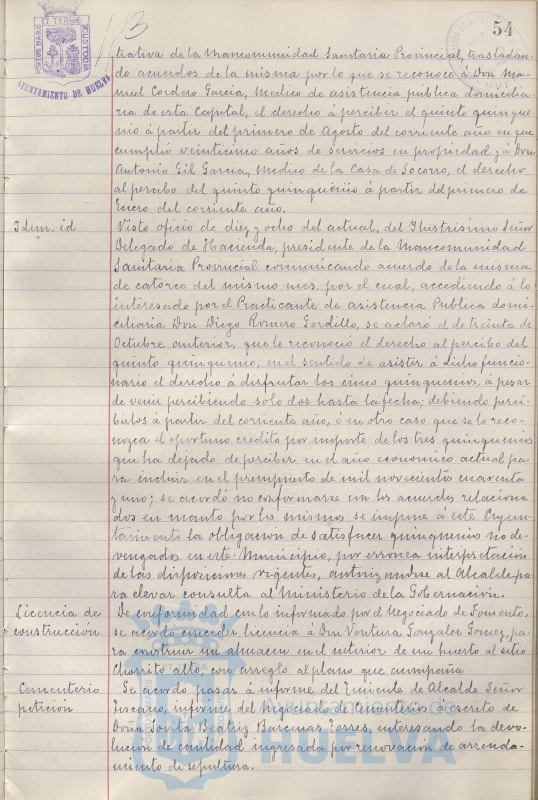 54
PORTUS MARIS ET TERRE CUSTODIA
AYUNTAMIENTO DE HUELVA
trativa de la Mancomunidad Sanitaria Provincial, trasladan-
do acuerdos de la misma por lo que se reconoce á Don Ma-
nuel Cordero Garcia, Medico de asistencia publica domicilia-
ria de esta Capital, el derecho á percibir el quinto quinque-
nio á partir del primero de Agosto del corriente año en que
cumplió veinticinco años de servicios en propiedad y á Don
Antonio Gil Garcia, Medico de la Casa de Socorro, el derecho
al percibo del quinto quinquenio á partir del primero de
Enero del corriente año.
Idem. id
Visto oficio de diez y ocho del actual, del Ilustrisimo Señor
Delegado de Hacienda, presidente de la Mancomunidad
Sanitaria Provincial comunicando acuerdo de la misma
de catorce del mismo mes, por el cual, accediendo á lo
interesado por el Practicante de asistencia Publica domi-
ciliaria Don Diego Romero Gordillo, se aclaró el de treinta de
Octubre anterior, que le reconoció el derecho al percibo del
quinto quinquenio, en el sentido de asistir á dicho funcio-
nario el derecho á disfrutar los cinco quinquenios, á pesar
de venir percibiendo solo dos hasta la fecha; debiendo perci-
birlos á partir del corriente año, ó en otro caso que se le reco-
nozca el oportuno credito por importe de los tres quinquenios
que ha dejado de percibir en el año economico actual pa-
ra incluir en el presupuesto de mil novecientos cuarenta
y uno; se acordó no conformarse con los acuerdos relaciona-
dos en cuanto por los mismos se impone á este Ayun-
tamiento la obligación de satisfacer quinquenios no de-
vengados en este Municipio, por erronea interpretación
de las disposiciones vigentes, autorizandose al Alcalde pa-
ra elevar consulta al Ministerio de la Gobernación.
Licencia de
construcción
De conformidad con lo informado por el Negociado de Fomento,
se acordó conceder licencia á Don Ventura Gonzalez Gomez, pa-
ra construir un almacen en el interior de un huerto al sitio
Chorrito alto, con arreglo al plano que acompaña
Cementerio
petición
Se acordo pasar á informe del Teniente de Alcalde Señor
Toscano, informe del Negociado de Cementerios á escrito de
Doña Beatriz Barcenas Torres, interesando la devo-
lución de cantidad ingresada por renovación de arrenda-
miento de sepultura.
Ayuntamiento de
HUELVA